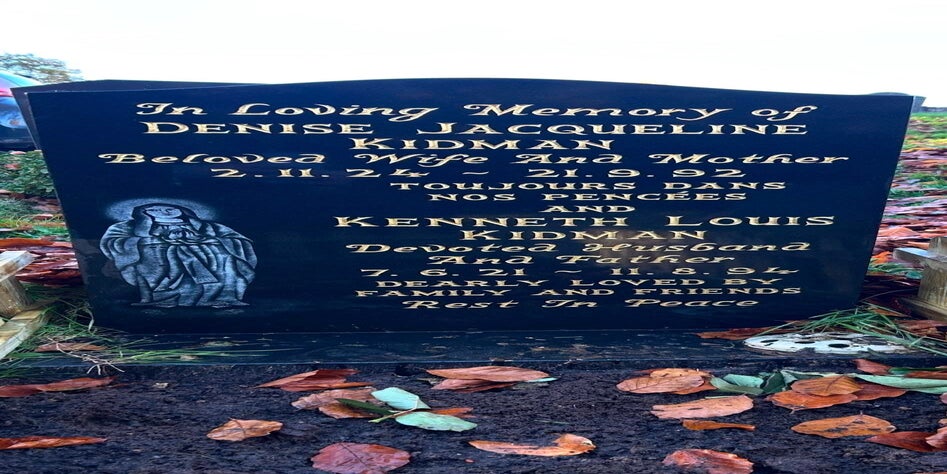 In Loving Memory of
DENISE JACQUELINE
KIDMAN
Beloved Wife And Mother
2.11.24 ~ 21.9.92
TOUJOURS DANS
NOS PENCÉES
AND
KENNETH LOUIS
KIDMAN
Devoted Husband
And Father
7.6.21 ~ 11.8.94
DEARLY LOVED BY
FAMILY AND FRIENDS
Rest In Peace